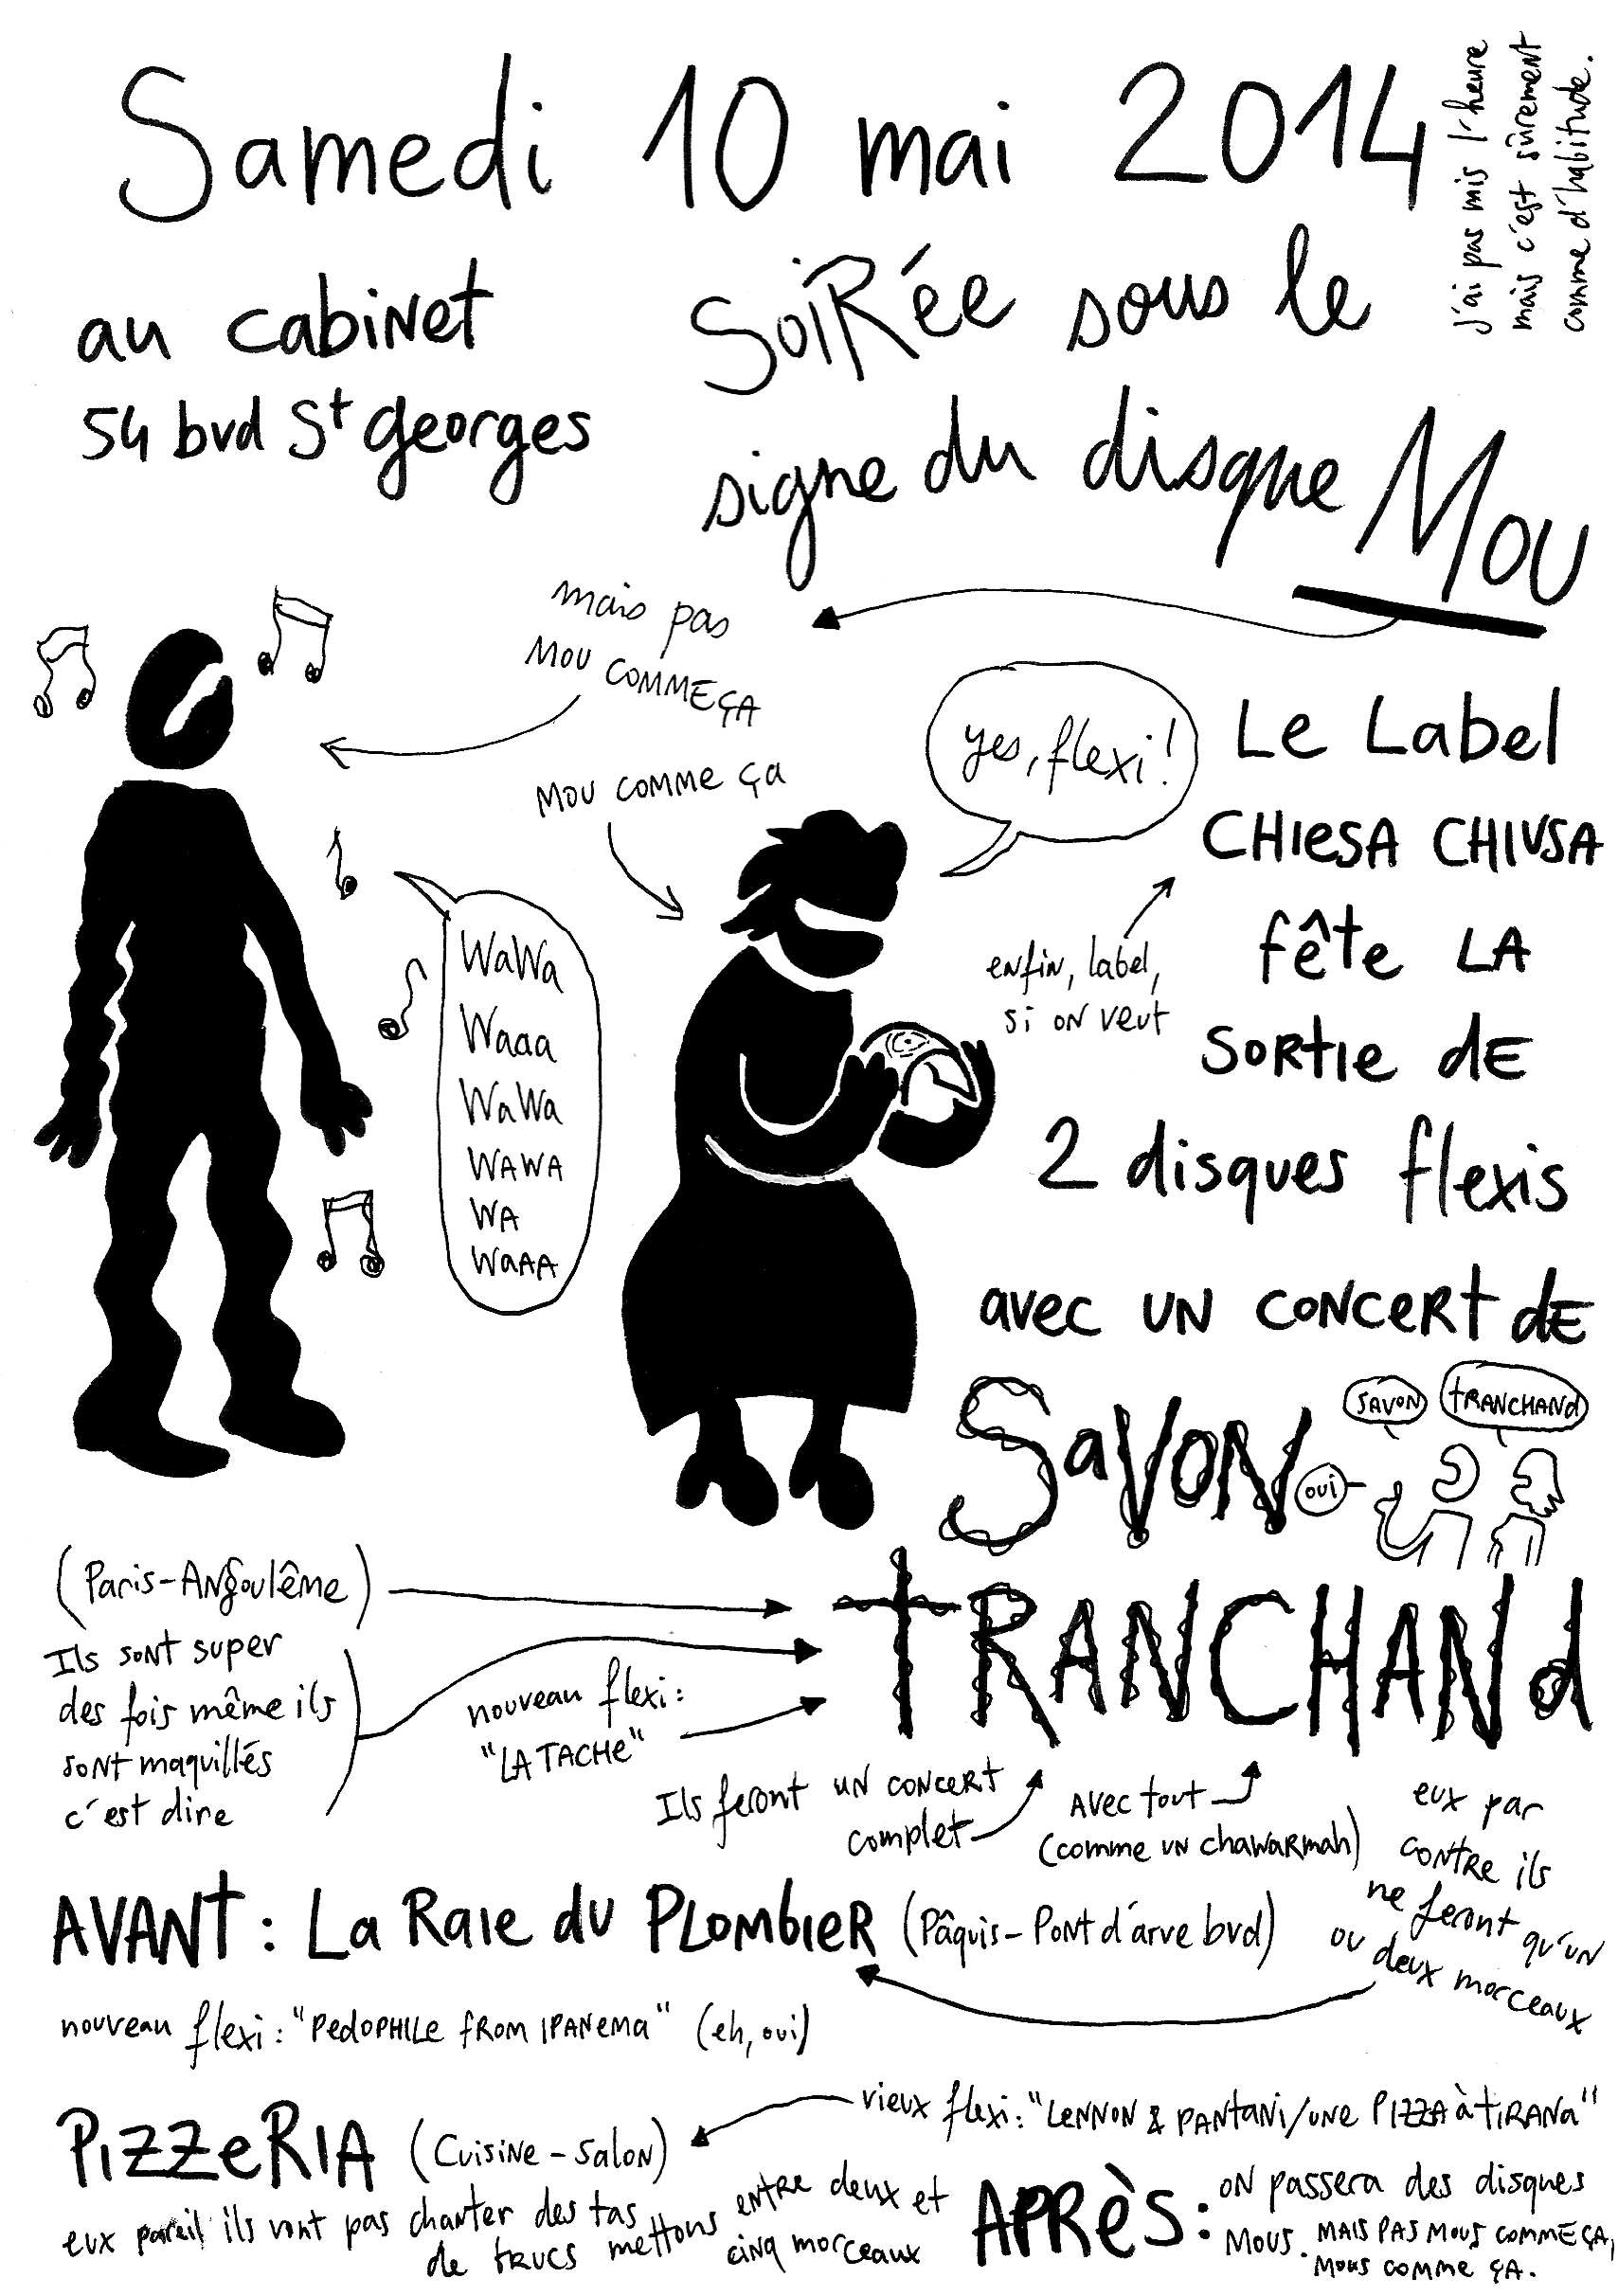 Samedi 10 mai 2014
J'ai pas mis l'heure
mais c'est sûrement
comme d'habitude.
au cabinet
54 bvd St Georges
Soirée sous le
signe du disque MOU
mais pas
MOU COMME ÇA
MOU COMME ÇA
yes, flexi!
Le Label
CHIESA CHIUSA
fête LA
SORTIE dE
2 disques flexis
enfin, label,
si on veut
WaWa
Waaa
WaWa
WAWA
WA
WaAA
avec UN CONCERT dE
SaVON
SAVON
TRANCHANd
OUI
TRANCHANd
(Paris-Angoulême)
Ils sont super
des fois même ils
sont maquillés
c'est dire
nouveau flexi:
"LA TACHe"
Ils feront un concert
complet
Avec tout
(comme un chawarmah)
eux par
contre ils
ne feront qu'un
ou deux morceaux
AVANT: La Raie du PLOMbIER (Pâquis-Pont d'arve bvd)
nouveau flexi: "PedOPHILe fROM IPANeMA" (eh, oui)
vieux flexi: "LeNNON & PANtANi/UNE PIZZA à tIRANa"
PIZZeRIA (Cuisine-Salon)
eux pareil ils vont pas chanter des tas
de trucs mettons entre deux et
cinq morceaux
APRÈS: on passera des disques
MOUS. MAIS PAS MOUS COMME ÇA,
MOUS COMME ÇA.